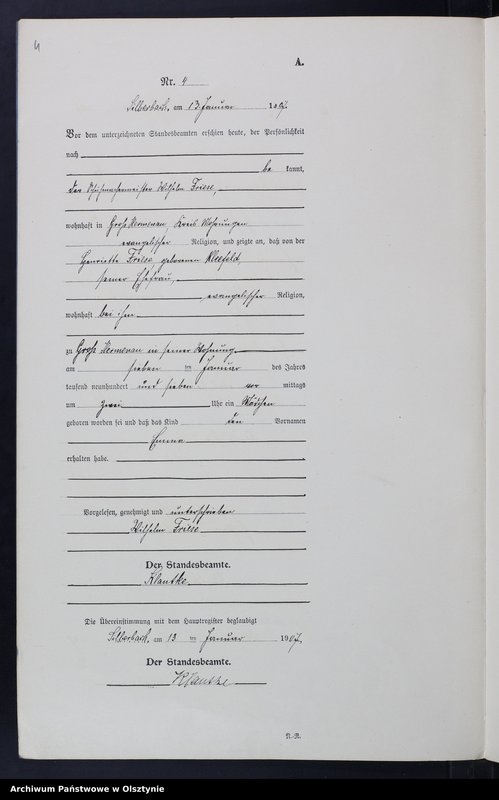 4
A.
Nr. 4
Silberbach, am 13 Januar 1907.
Vor dem unterzeichneten Standesbeamten erschien heute, der Persönlichkeit
nach
be kannt,
der Schuhmachermeister Wilhelm Friese,
wohnhaft in Groß Hermenau, Kreis Mohrungen
evangelischer Religion, und zeigte an, daß von der
Henriette Friese, geborenen Kleefeld,
seiner Ehefrau,
evangelischer Religion,
wohnhaft bei ihm
zu Groß Hermenau in seiner Wohnung
am sieben ten Januar des Jahres
tausend neunhundert und sieben vor mittags
um zwei Uhr ein Mädchen
geboren worden sei und daß das Kind den Vornamen
Emma
erhalten habe.
Vorgelesen, genehmigt und unterschrieben
Wilhelm Friese
Der Standesbeamte.
Klautke
Die Übereinstimmung mit dem Hauptregister beglaubigt
Silberbach, am 13 ten Januar 1907.
Der Standesbeamte.
Klautke
Archiwum Państwowe w Olsztynie